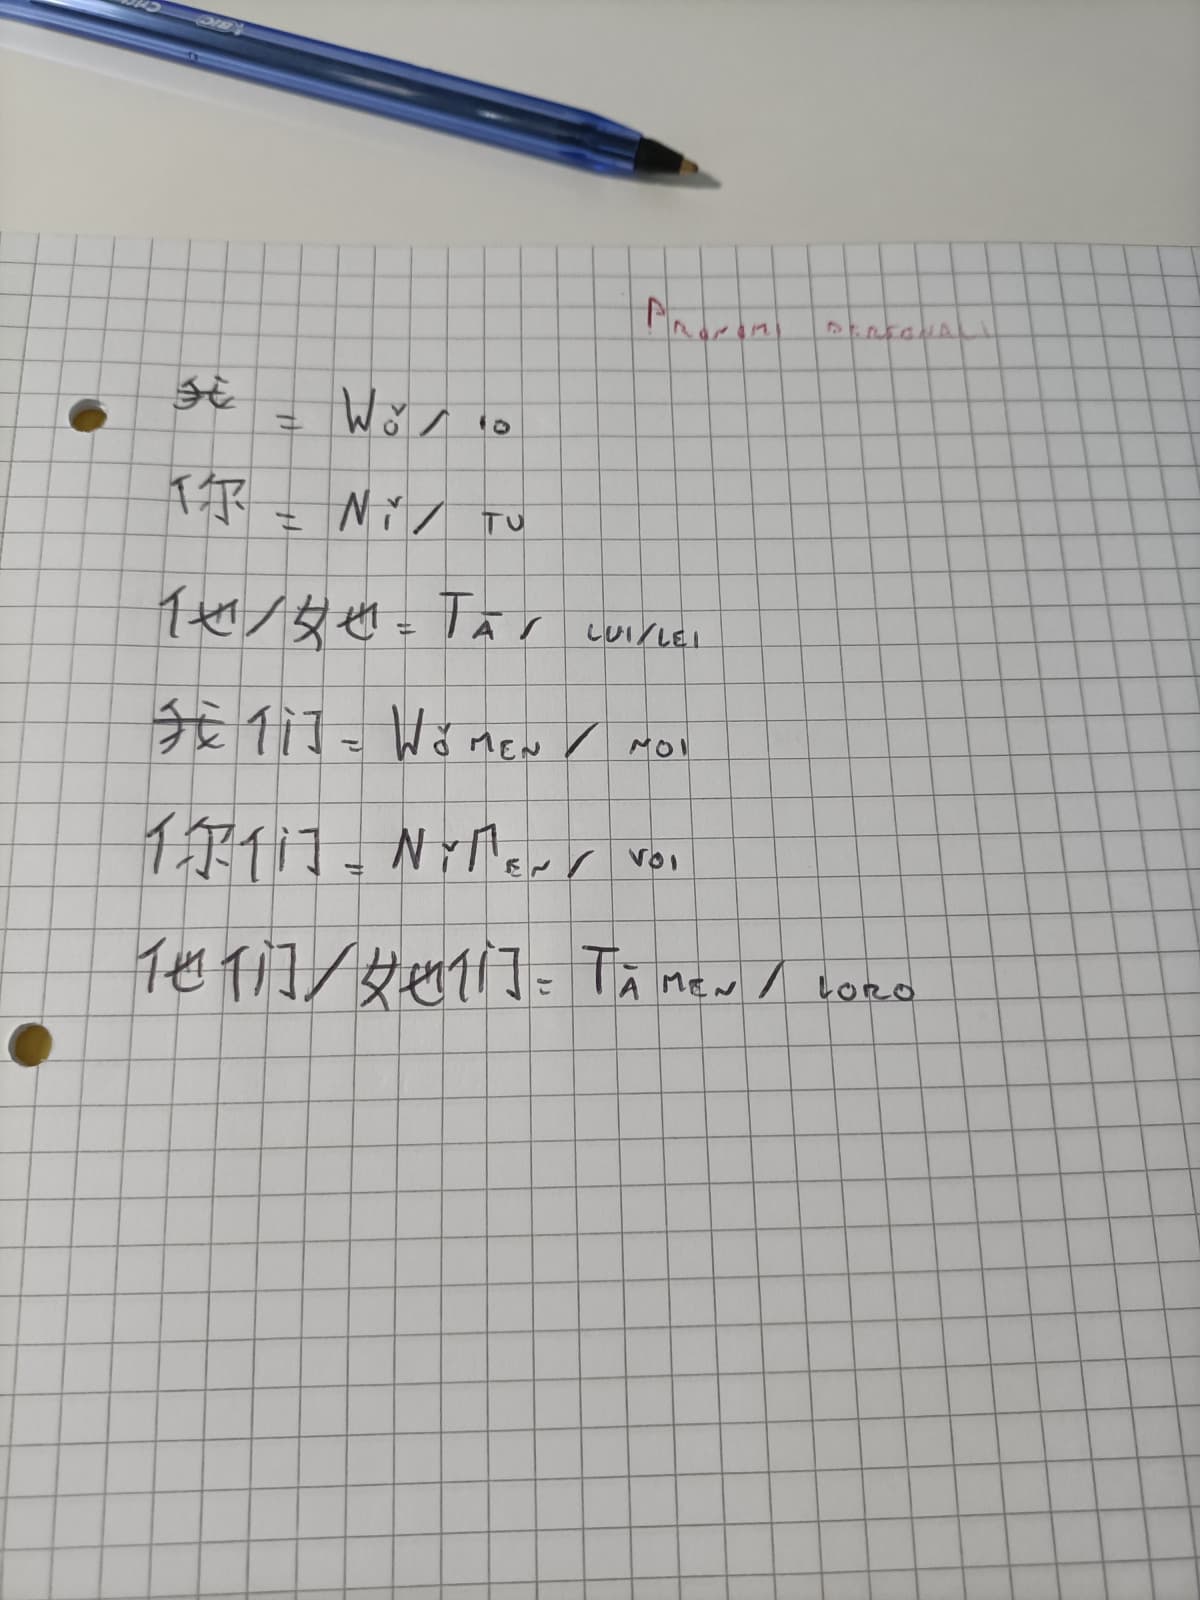 PRONOMI PERSONALI
我 = Wǒ / IO
你 = Nǐ / TU
他/她 = TĀ / LUI/LEI
我们 = WǒMEN / NOI
你们 = NǐMEN / VOI
他们/她们 = TĀMEN / LORO